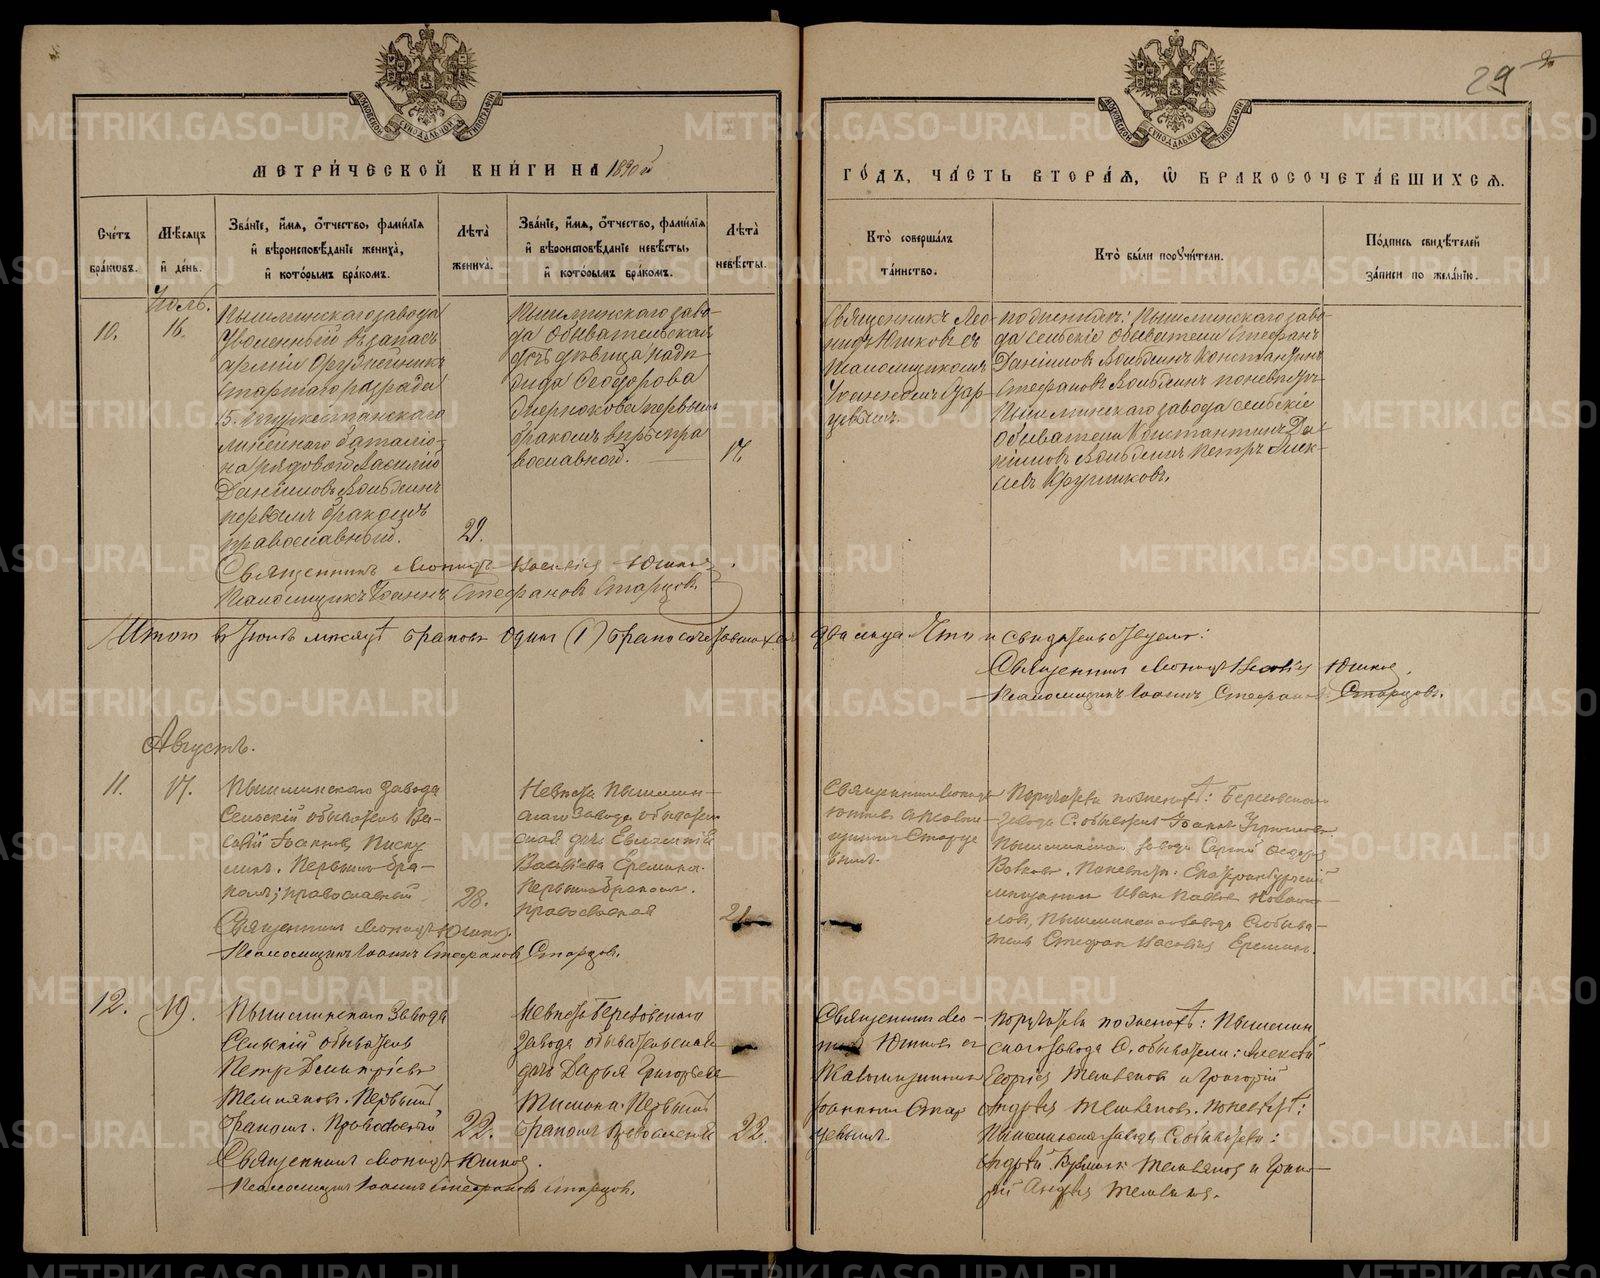 29
МОСКОВСКОЙ СѴНОДАЛЬНОЙ ТИПОГРАФІИ
МОСКОВСКОЙ СѴНОДАЛЬНОЙ ТИПОГРАФІИ
МЕТРИЧЕСКОЙ КНИГИ НА 1890й
ГОДЪ, ЧАСТЬ ВТОРАѦ, Ѡ БРАКОСОЧЕТАВШИХСѦ.
Счетъ браковъ.
Мѣсѧцъ и день.
Званіе, имѧ, отчество, фамиліѧ
и вѣроисповѣданіе жениха,
и которымъ бракомъ.
Лѣта
жениха.
Званіе, имѧ, отчество, фамиліѧ
и вѣроисповѣданіе невѣсты,
и которымъ бракомъ.
Лѣта
невѣсты.
Кто совершалъ
таинство.
Кто были поручители.
Подпись свидѣтелей
записи по желанію.
Іюль.
10.
16.
Пышминскаго завода
уволенный въ запасъ
арміи Оружейникъ
старшаго разряда
5. Туркестанскаго
линейнаго баталіо-
на рядовой Василій
Даніиловъ
первымъ бракомъ
православный.
29.
Пышминскаго заво-
да Обывательская
дочь дѣвица
Ѳеодорова
первымъ
бракомъ
вославной.
17.
Священникъ Лео-
нидъ Юшковъ съ
Псаломщикомъ
Іоанномъ Стар-
цевымъ.
по женихѣ: Пышминскаго заво-
да сельскіе обыватели Стефанъ
Даніиловъ Константинъ
Стефановъ по невѣстѣ
Пышминскаго завода сельскіе
обыватели Константинъ Да-
ніиловъ Петръ Алек-
Кругликовъ.
Священникъ Леонидъ Васильевъ Юшковъ.
Псаломщикъ Іоаннъ Стефановъ Старцовъ.
Итого въ Іюлѣ мѣсяцѣ браковъ Одинъ (1) бракосочетавшихся два лица Что и свидѣтельствуемъ:
Священникъ Леонидъ Васильевъ Юшковъ.
Псаломщикъ Іоаннъ Стефановъ Старцовъ.
Августъ.
11.
17.
Пышминскаго завода
Сельскій обыватель Ва-
силій Іоанновъ
Первымъ бра-
комъ; православный
28.
Невѣста Пышмин-
скаго завода обыватель-
ская дочь Евлампія
Васильева Еремина.
Первымъ бракомъ.
православная
21.
Священникъ Леонидъ
Юшковъ съ Псалом-
щикомъ Старце
вымъ.
Поручатели по женихѣ: Березовскаго
завода С. обыватель Іоаннъ
Пышминскаго завода Сергій Ѳеодоровъ
Волковъ. По невѣстѣ: Екатеринбургскій
мѣщанинъ Иванъ Павловъ
Пышминскаго завода С. обыва-
тель Стефанъ Васильевъ Ереминъ.
Священникъ Леонидъ Юшковъ.
Псаломщикъ Іоаннъ Стефановъ Старцовъ.
12.
19.
Пышминскаго Завода
Сельскій обыватель
Петръ Димитріевъ
Первымъ
бракомъ. Православный
22.
Невѣста Березовскаго
завода обывательская
дочь Дарья Григорьева
Первымъ
бракомъ Православная
22.
Священникъ Лео-
нидъ Юшковъ съ
Псаломщикомъ
Іоанномъ Стар
цевымъ.
Поручатели по женихѣ: Пышмин
скаго завода С. обыватели: Алексѣй
Георгіевъ и Григорій
Андреевъ По невѣстѣ:
Пышминскаго завода С. обыватели:
Андрей и Григо-
рій Андреевъ
Священникъ Леонидъ Юшковъ.
Псаломщикъ Іоаннъ Стефановъ Старцовъ.
METRIKI.GASO-URAL.RU